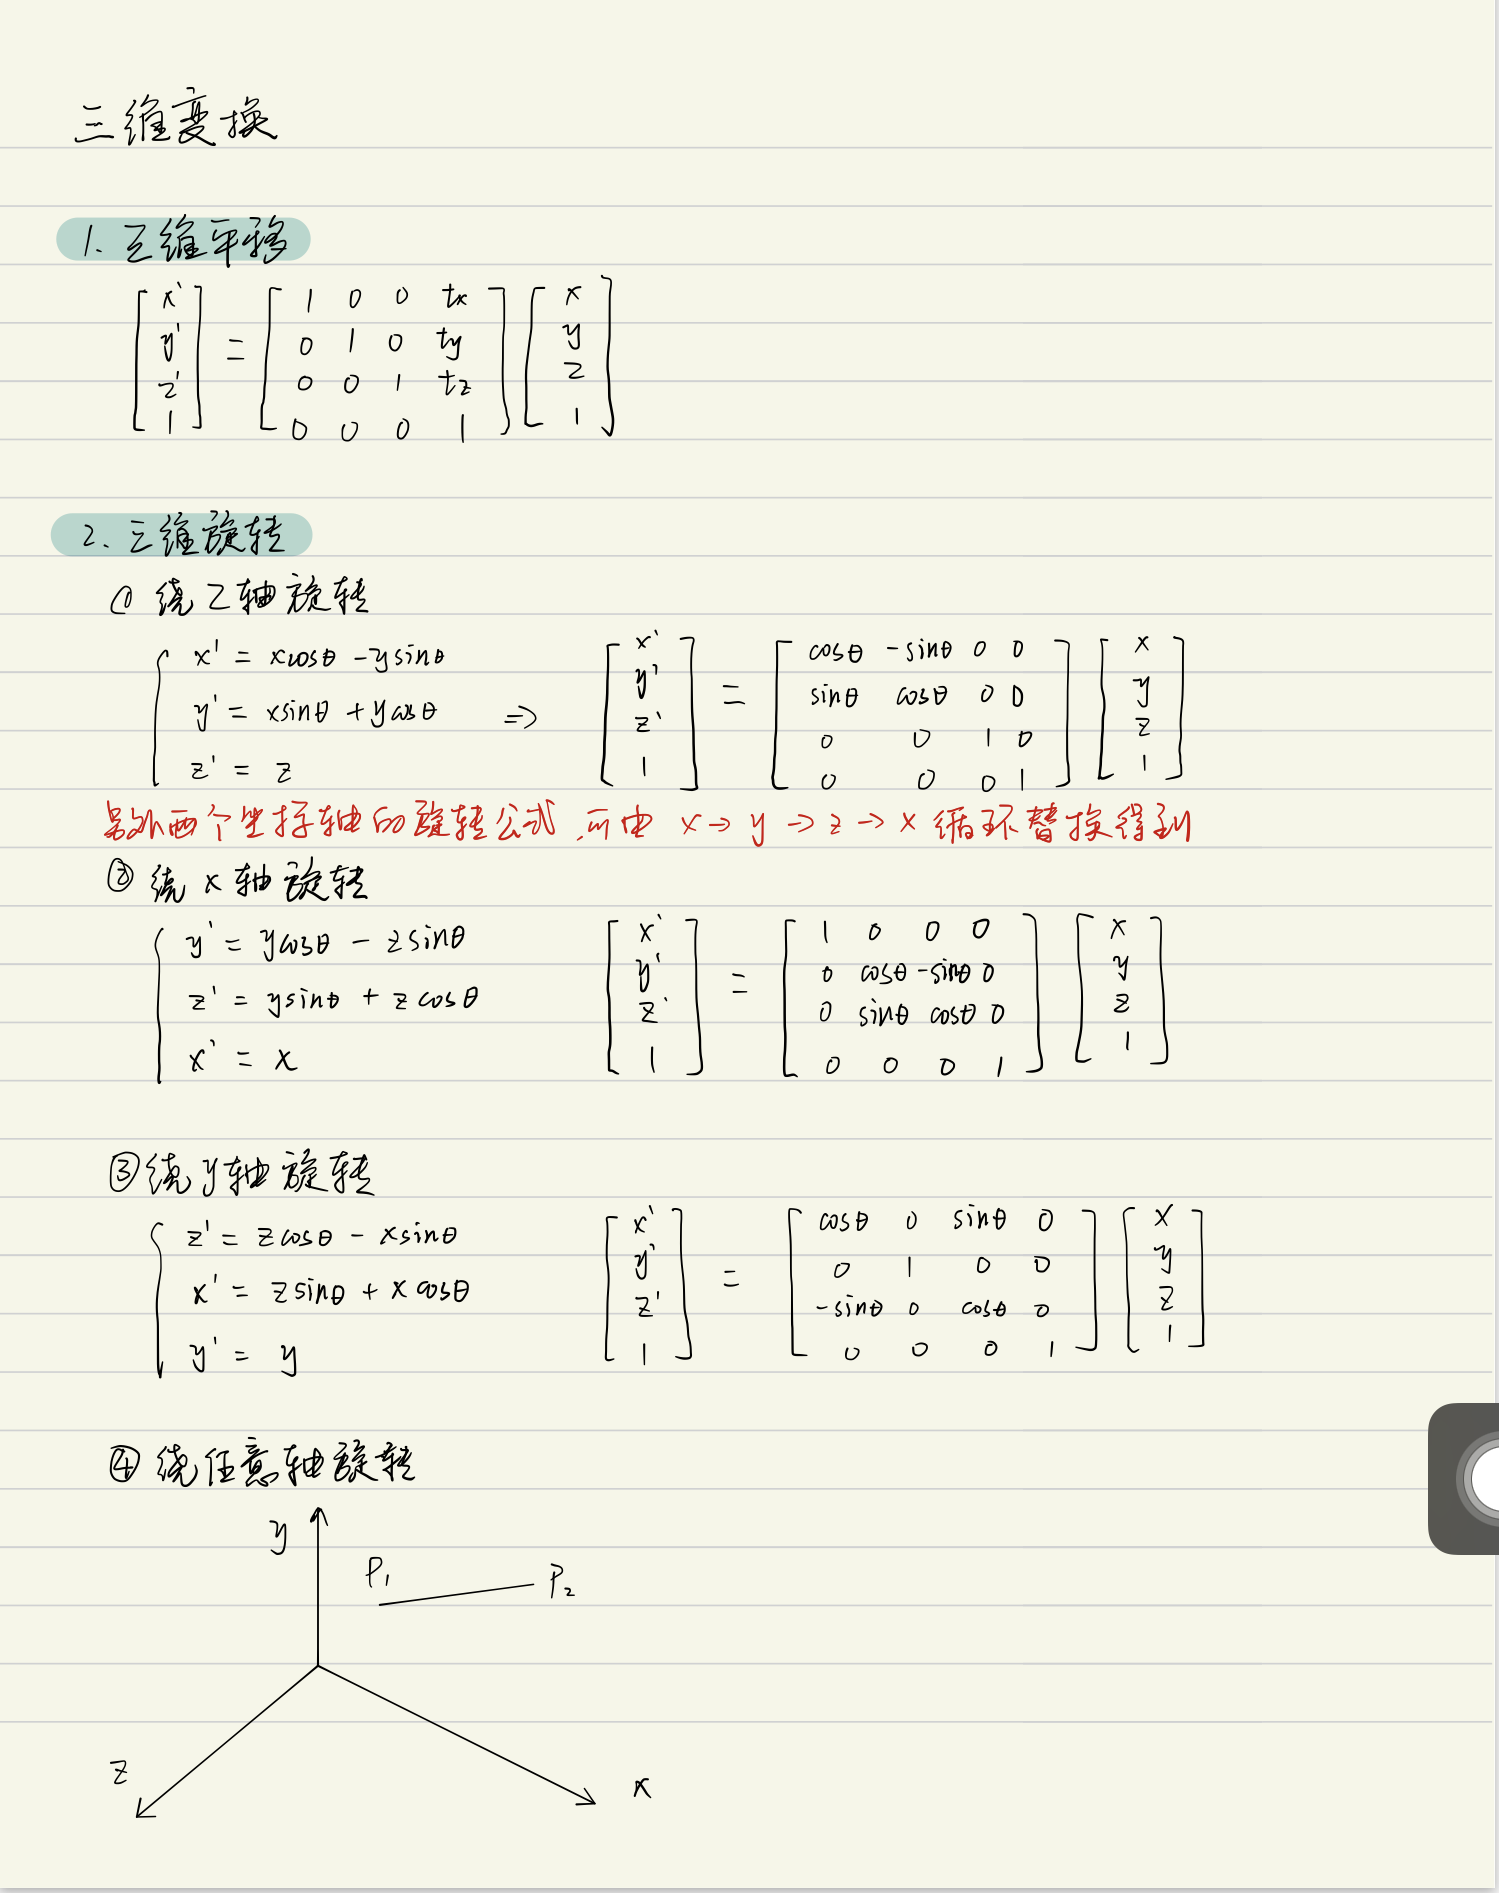 三维变换
1. 三维平移
[x' y' z' 1] = [1 0 0 tx; 0 1 0 ty; 0 0 1 tz; 0 0 0 1] [x y z 1]
2. 三维旋转
① 绕Z轴旋转
x' = xcosθ - ysinθ
y' = xsinθ + ycosθ
z' = z
⇒ [x' y' z' 1] = [cosθ -sinθ 0 0; sinθ cosθ 0 0; 0 0 1 0; 0 0 0 1] [x y z 1]
另外两个坐标轴的旋转公式,可由 x→y→z→x 循环替换得到
② 绕x轴旋转
y' = ycosθ - zsinθ
z' = ysinθ + zcosθ
x' = x
[x' y' z' 1] = [1 0 0 0; 0 cosθ -sinθ 0; 0 sinθ cosθ 0; 0 0 0 1] [x y z 1]
③ 绕y轴旋转
z' = zcosθ - xsinθ
x' = zsinθ + xcosθ
y' = y
[x' y' z' 1] = [cosθ 0 sinθ 0; 0 1 0 0; -sinθ 0 cosθ 0; 0 0 0 1] [x y z 1]
④ 绕任意轴旋转
y
P₁
P₂
z
x